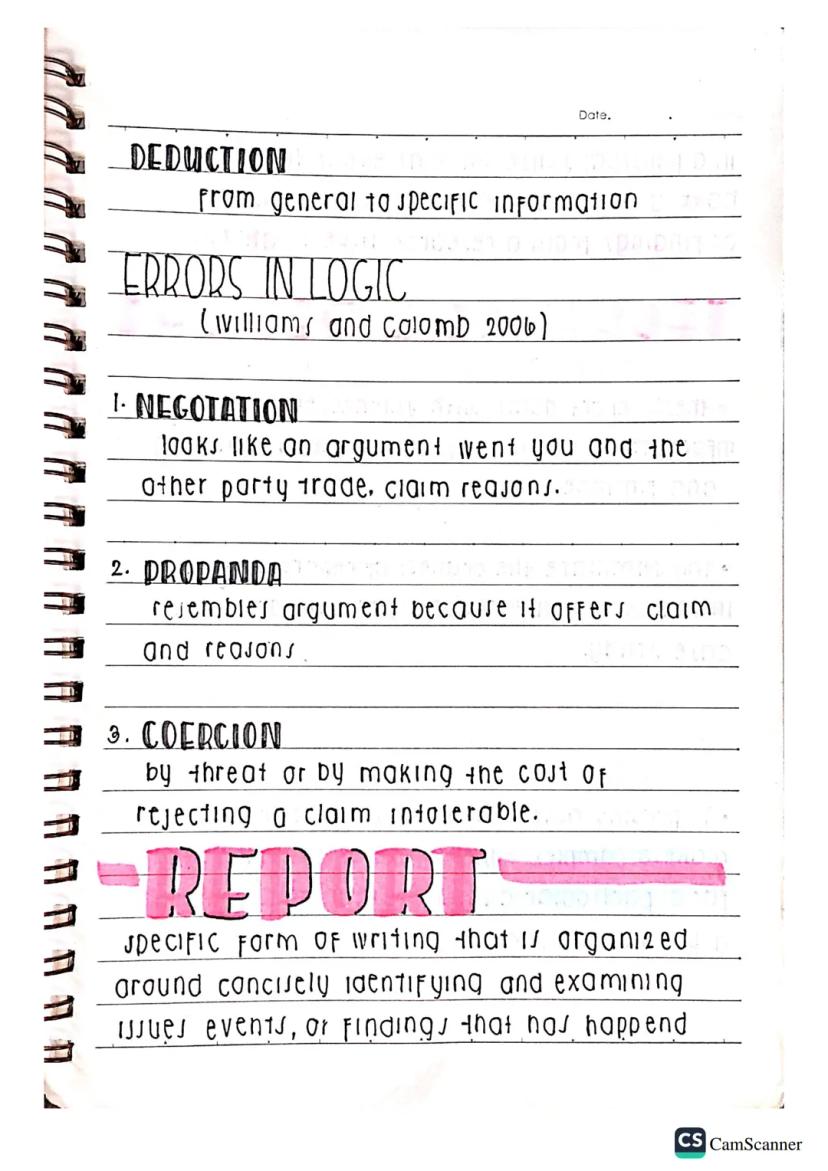 Date.
DEDUCTION
from general to specific information
ERRORS IN LOGIC
(Williams and Colomb 2006)
1. NEGOTATION
looks like an argument went you and the
other party trade, claim reasons.
2. PROPANDA
resembles argument because it offers claim
and reasons.
3. COERCION
by threat or by making the cost of
rejecting a claim intolerable.
REPORT
specific form of writing that is organized
around concisely identifying and examining
issues events, or findings that has happend
CS CamScanner